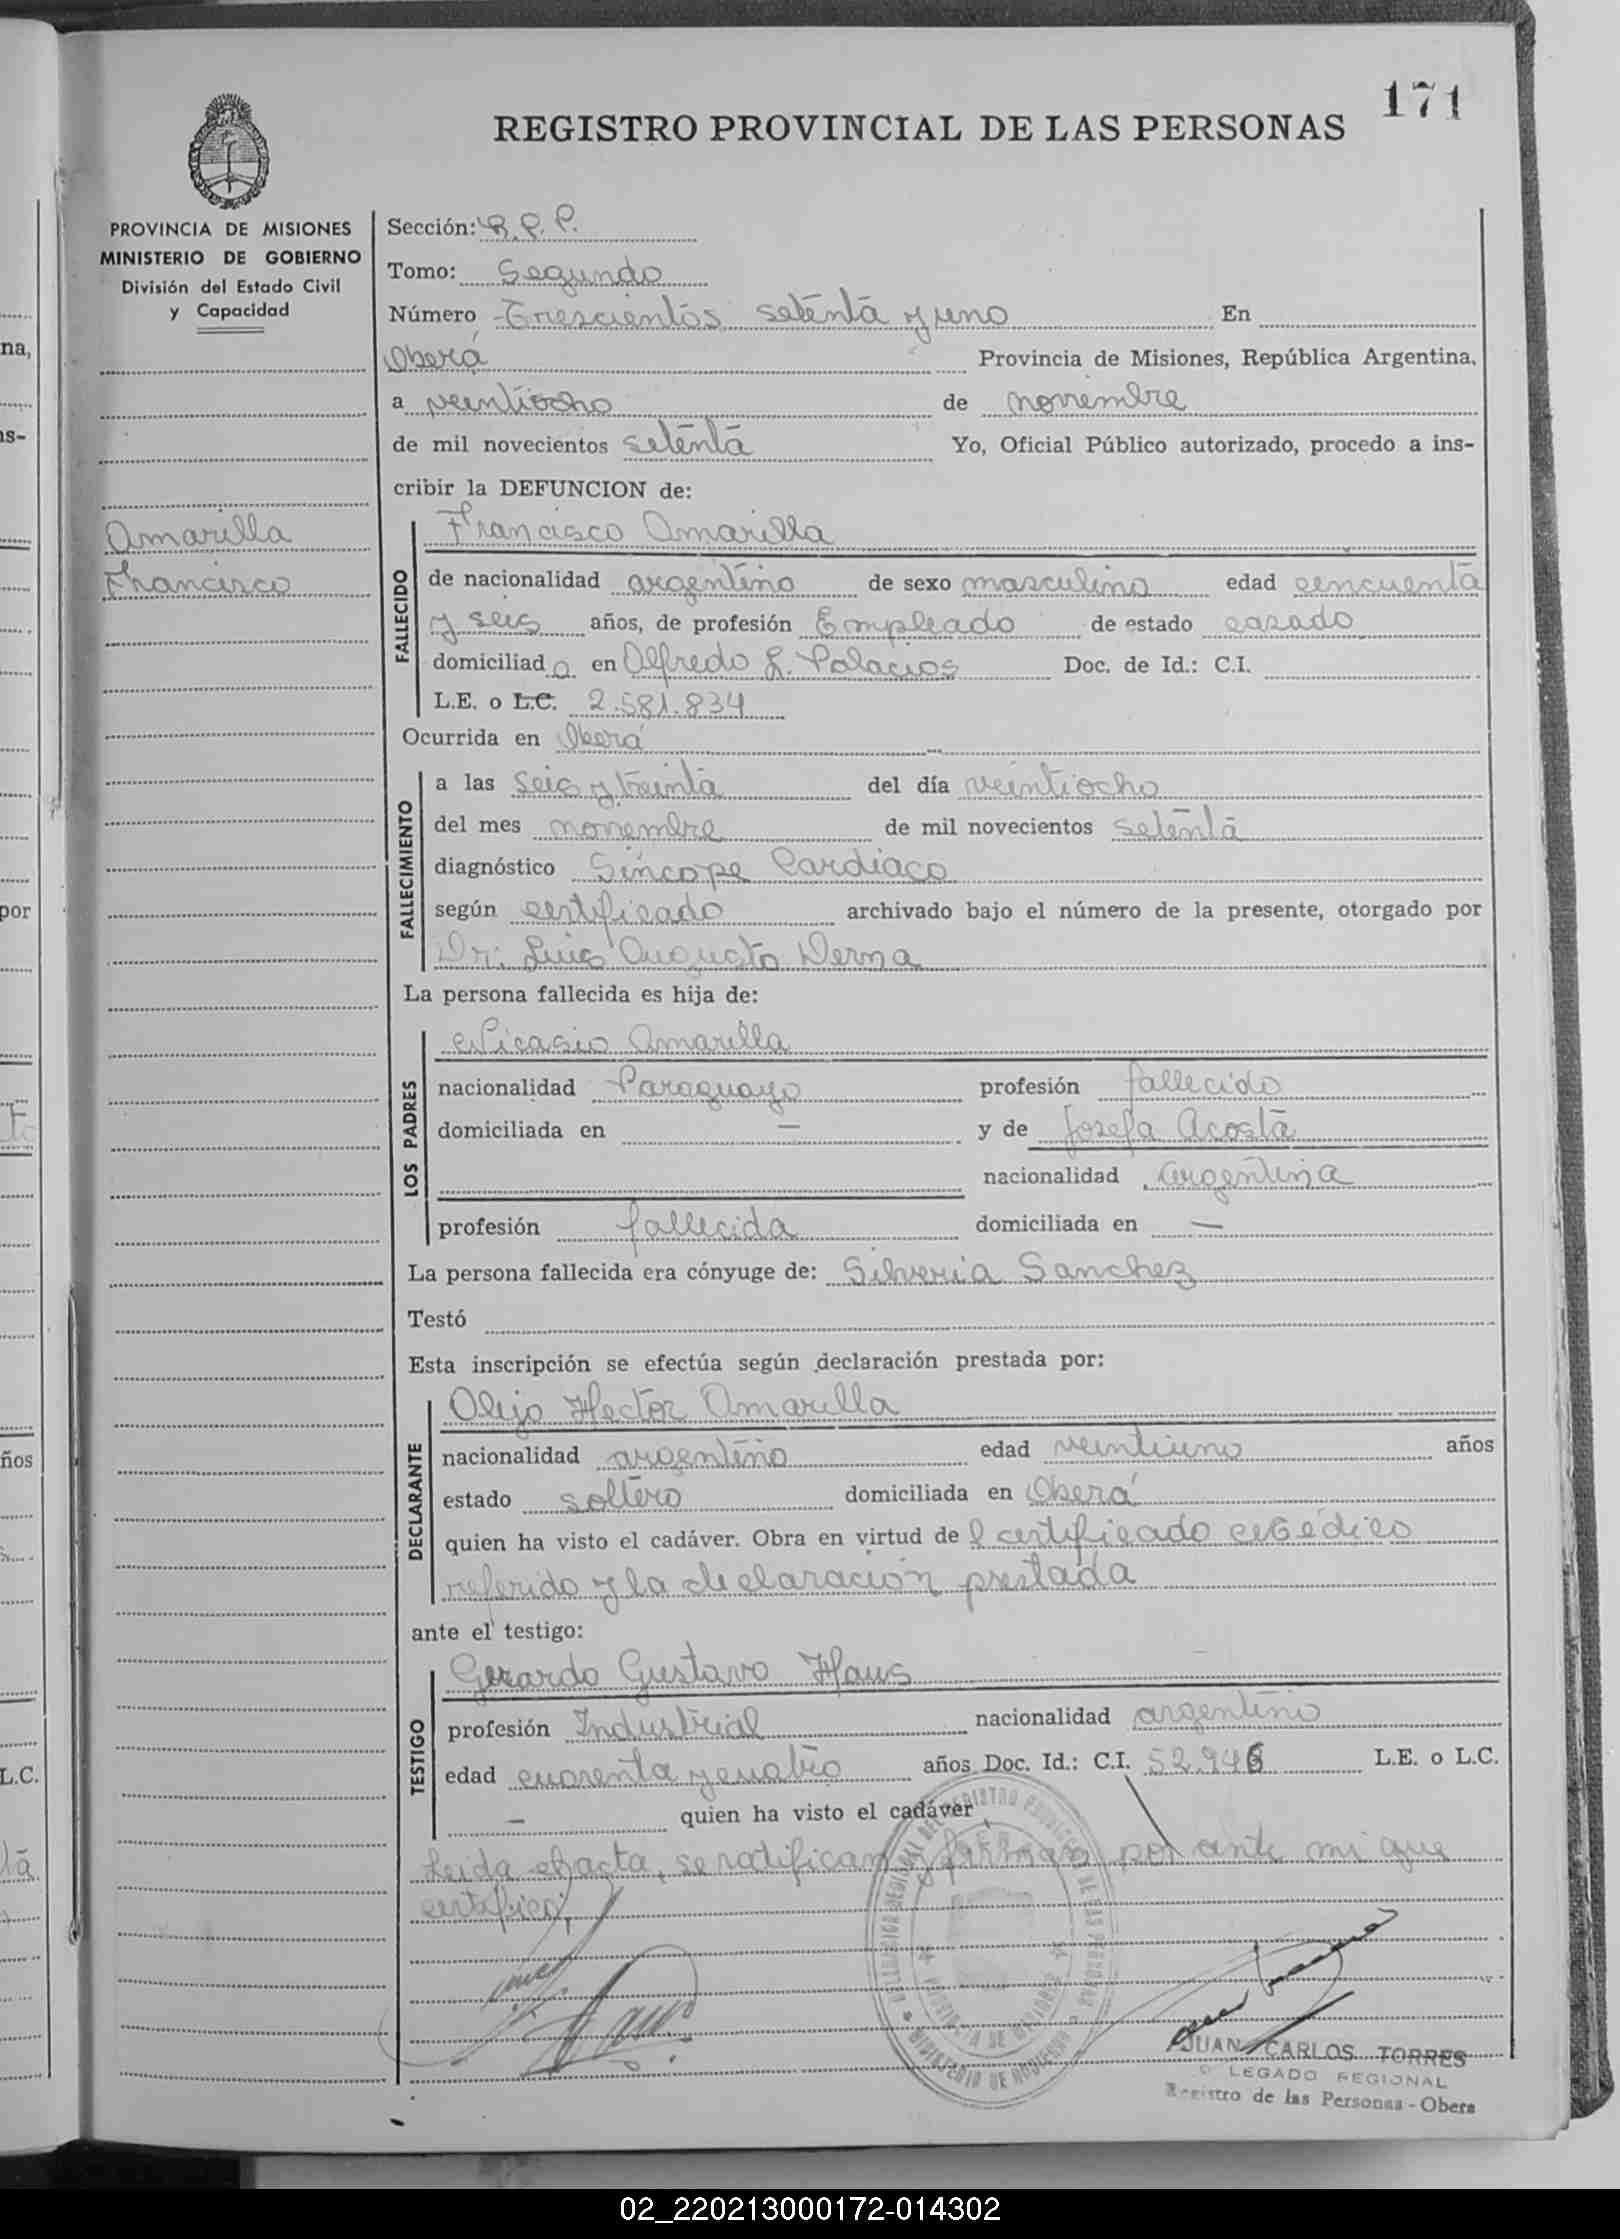 171
REGISTRO PROVINCIAL DE LAS PERSONAS
PROVINCIA DE MISIONES
MINISTERIO DE GOBIERNO
División del Estado Civil
y Capacidad
Amarilla
Francisco
Sección: R.P.P.
Tomo: Segundo
Número Trescientos setenta y uno En
Oberá Provincia de Misiones, República Argentina,
a veintiocho de noviembre
de mil novecientos setenta Yo, Oficial Público autorizado, procedo a ins-
cribir la DEFUNCION de:
FALLECIDO
Francisco Amarilla
de nacionalidad argentino de sexo masculino edad cincuenta
y seis años, de profesión Empleado de estado casado
domiciliado en Alfredo L. Palacios Doc. de Id.: C.I.
L.E. o L.C. 2.581.834
Ocurrida en Oberá
FALLECIMIENTO
a las seis y treinta del día veintiocho
del mes noviembre de mil novecientos setenta
diagnóstico Síncope Cardiaco
según certificado archivado bajo el número de la presente, otorgado por
Dr. Luis Augusto Derna
La persona fallecida es hija de:
LOS PADRES
Nicasio Amarilla
nacionalidad Paraguayo profesión fallecido
domiciliada en — y de Josefa Acosta
nacionalidad argentina
profesión fallecida domiciliada en —
La persona fallecida era cónyuge de: Silveria Sanchez
Testó
Esta inscripción se efectúa según declaración prestada por:
DECLARANTE
Alejo Hector Amarilla
nacionalidad argentino edad veintiuno años
estado soltero domiciliada en Oberá
quien ha visto el cadáver. Obra en virtud del certificado médico
referido y la declaración prestada
ante el testigo:
TESTIGO
Gerardo Gustavo Haus
profesión Industrial nacionalidad argentino
edad cuarenta y cuatro años Doc. Id.: C.I. 52.946 L.E. o L.C.
— quien ha visto el cadáver
Leida el acta, se ratifican y firman por ante mi que
certifico,
JUAN CARLOS TORRES
LEGADO REGIONAL
Registro de las Personas - Obera
02_220213000172-014302